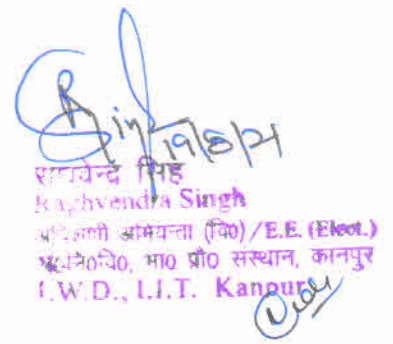 19/8/21
राघवेन्द्र सिंह
Raghvendra Singh
अधिशाषी अभियन्ता (वि०)/E.E. (Elect.)
भा० प्रौ० संस्थान, कानपुर
I.W.D., I.I.T. Kanpur